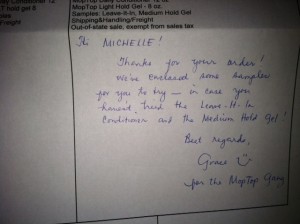 Daily Conditioner 12
MopTop Daily Conditioner 12
MopTop Light Hold Gel - 8 oz.
Samples: Leave-It-In, Medium Hold Gel
Shipping&Handling/Freight
Out-of-state sale, exempt from sales tax
hold gel 8
Freight
Hi MICHELLE!
Thanks for your order!
We've enclosed some samples
for you to try — in case you
haven't tried the Leave-It-In
Conditioner and the Medium Hold Gel!
Best regards,
Grace
for the MopTop Gang